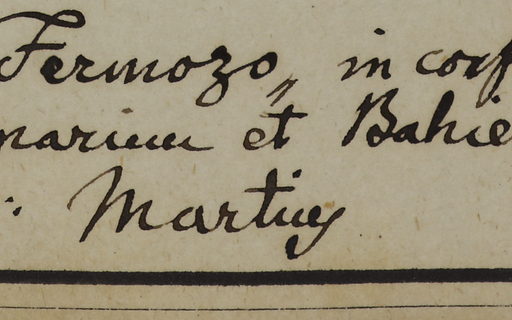 Fermozo, in conf
narum et Bahie
: Martius